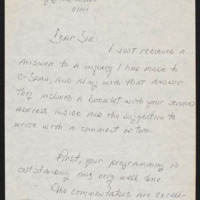 Dear Sir:
I just received a
answer to a inquiry I had made to
C-Span, and along with that answer
they included a booklet with your
address inside and the suggestion to
write with a comment or two.
First, your programming is
outstanding and very well done.
The commentators are excell-